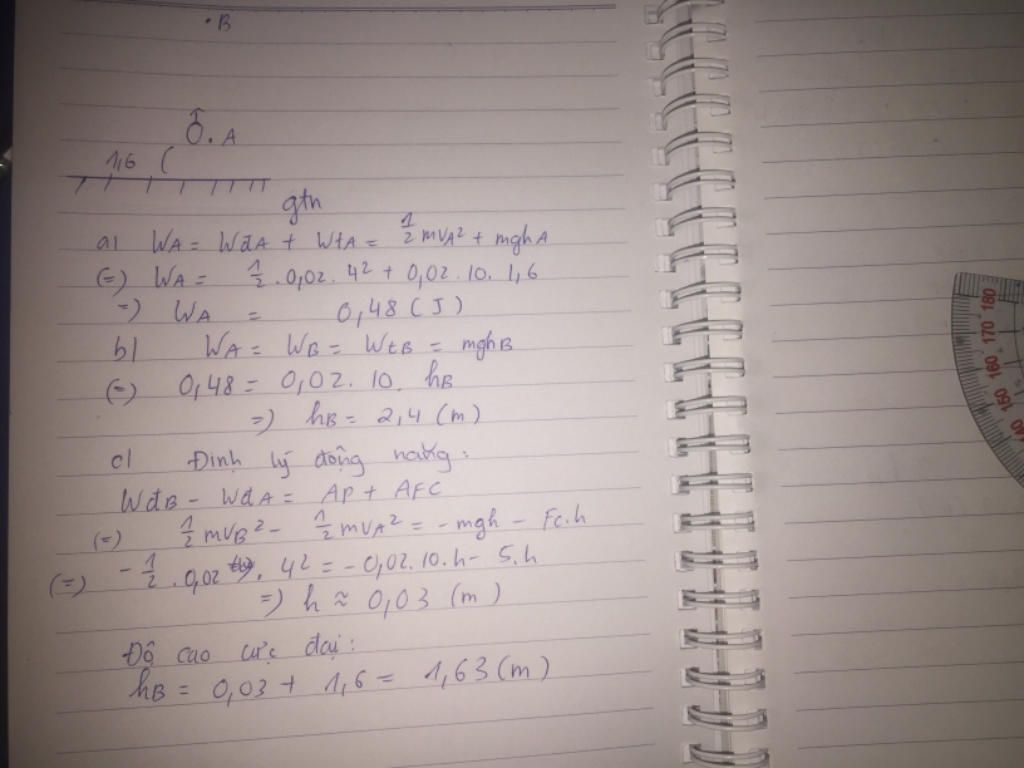 .B
O. A
1,6
gtn
a) WA = WđA + WtA = 1/2 mvA² + mghA
(=) WA = 1/2 . 0,02. 4² + 0,02 . 10. 1,6
=) WA = 0,48 (J)
b) WA = WB = WtB = mghB
(=) 0,48 = 0,02. 10. hB
=) hB = 2,4 (m)
c) Định lý động năng:
WđB - WđA = AP + AFC
(=) 1/2 mvB² - 1/2 mvA² = - mgh - Fc.h
(=) - 1/2 . 0,02 . 4² = - 0,02. 10. h - 5. h
=) h ≈ 0,03 (m)
Độ cao cực đại:
hB = 0,03 + 1,6 = 1,63 (m)
180
170
160
150